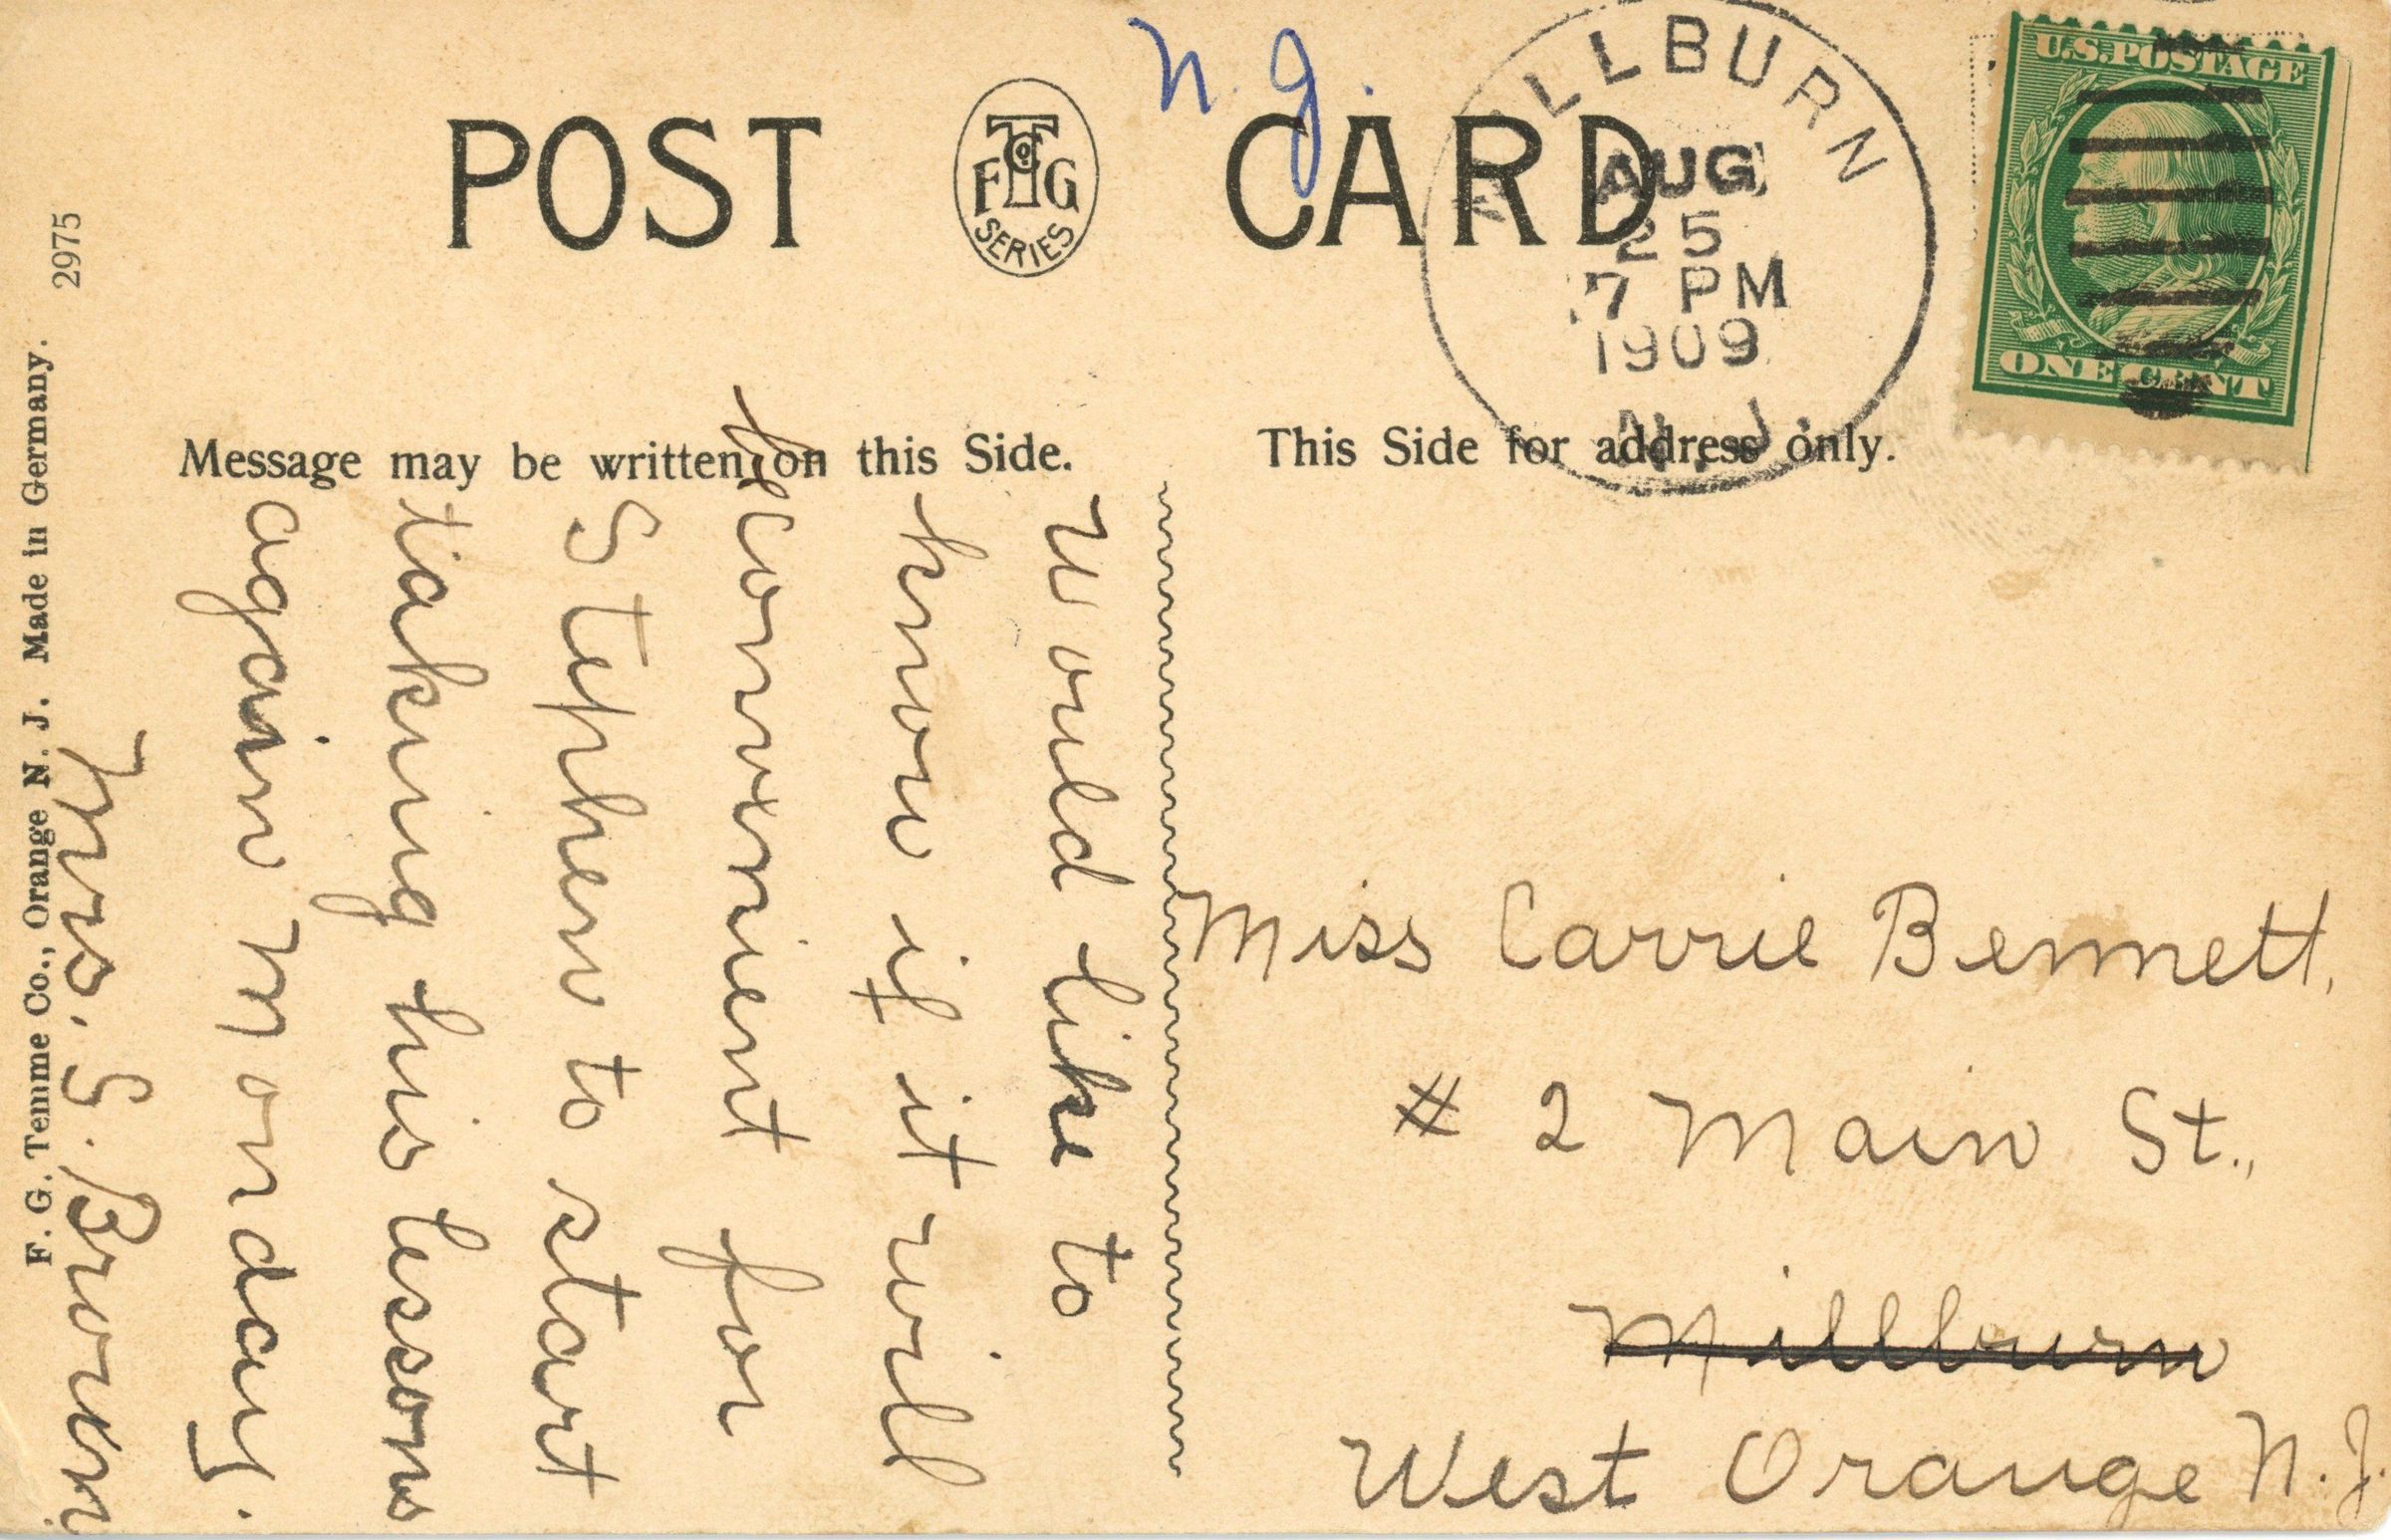 N. J.
POST CARD
F T Co G
SERIES
MILLBURN
AUG
25
7 PM
1909
N. J.
U.S. POSTAGE
ONE CENT
Message may be written on this Side.
This Side for address only.
Would like to
know if it will
be convenient for
Stephen to start
taking his lessons
again Monday.
Mrs. G. Brown
Miss Carrie Bennett,
# 2 Main St.,
Millburn
West Orange N.J.
F. G. Temme Co., Orange N. J. Made in Germany. 2975